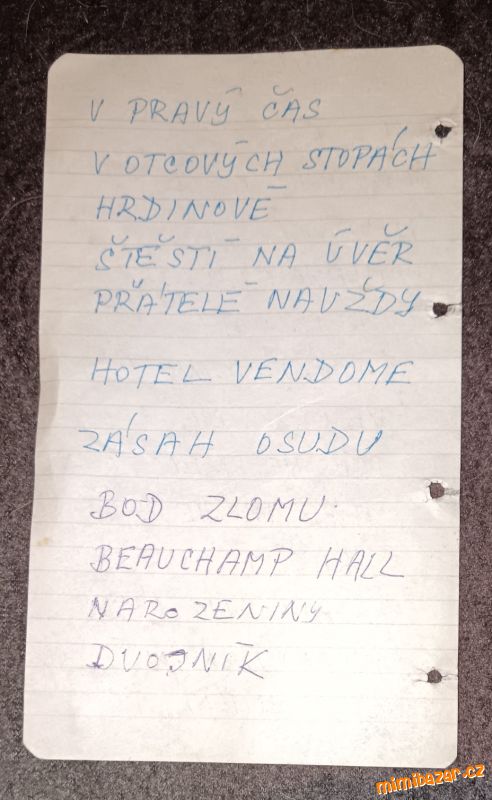 V PRAVÝ ČAS
V OTCOVÝCH STOPÁCH
HRDINOVÉ
ŠTĚSTÍ NA ÚVĚR
PŘÁTELÉ NAVŽDY
HOTEL VENDOME
ZÁSAH OSUDU
BOD ZLOMU.
BEAUCHAMP HALL
NAROZENINY
DVOJNÍK
mimibazar.cz